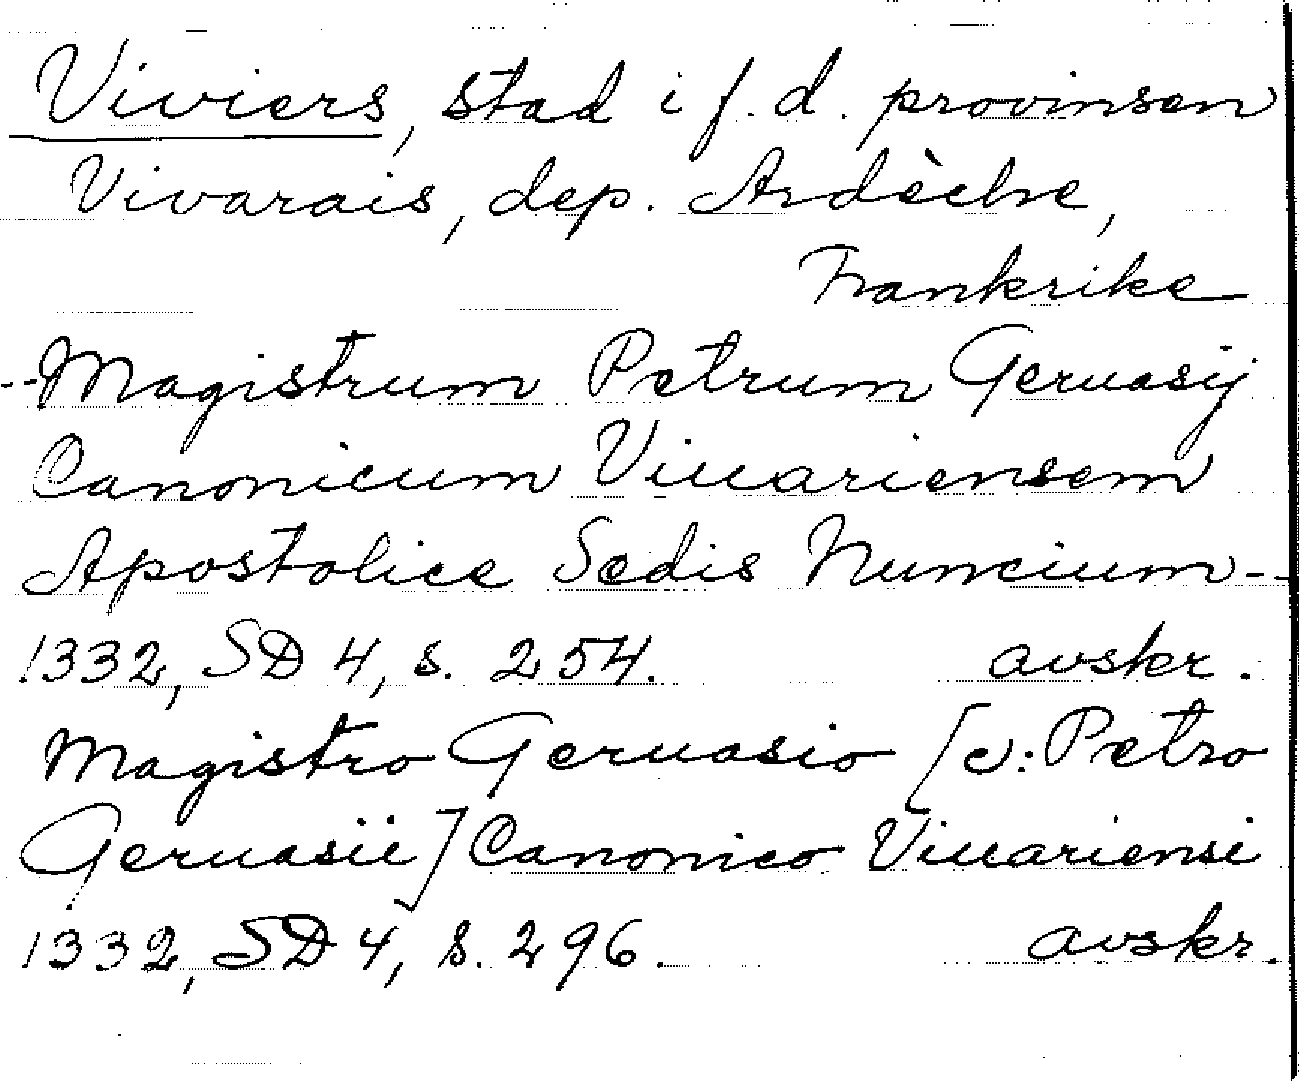 Viviers, stad i f. d. provinsen
Vivarais, dep. Ardèche,
Frankrike
--Magistrum Petrum Geruasij
Canonicum Viuariensem
Apostolice Sedis Nuncium--
1332, SD 4, s. 254. avskr.
Magistro Geruasio [v: Petro
Geruasii] Canonico Viuariensi
1332, SD 4, s. 296. avskr.